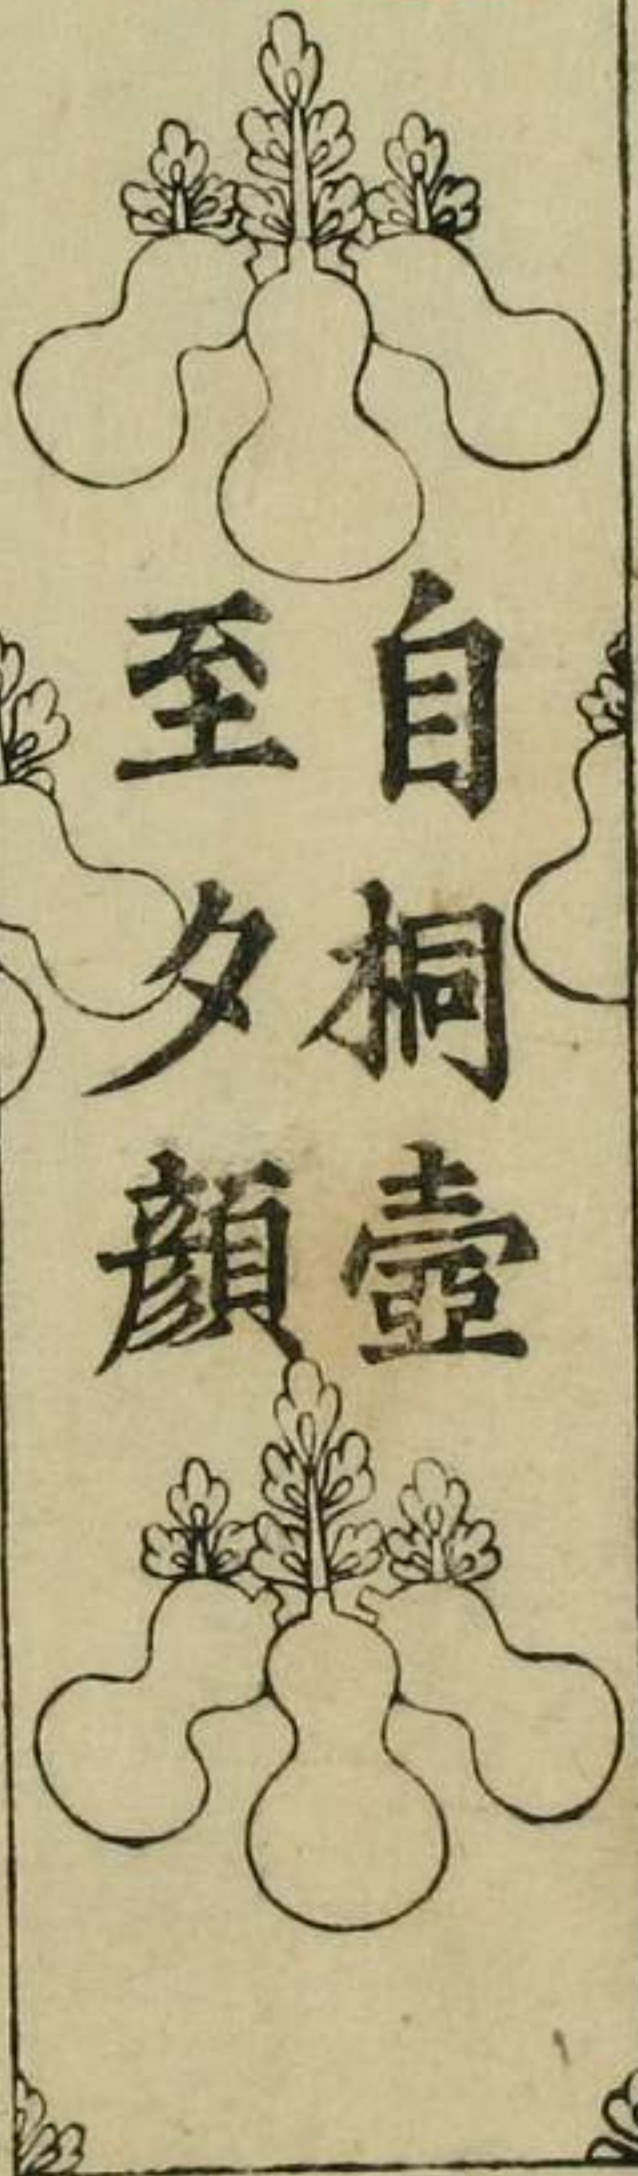 自桐壺
至夕顔